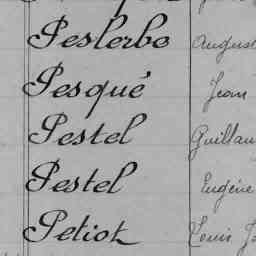 Peslerbe August
Pesqué Jean
Pestel Guillau
Pestel Eugène
Petiot Louis